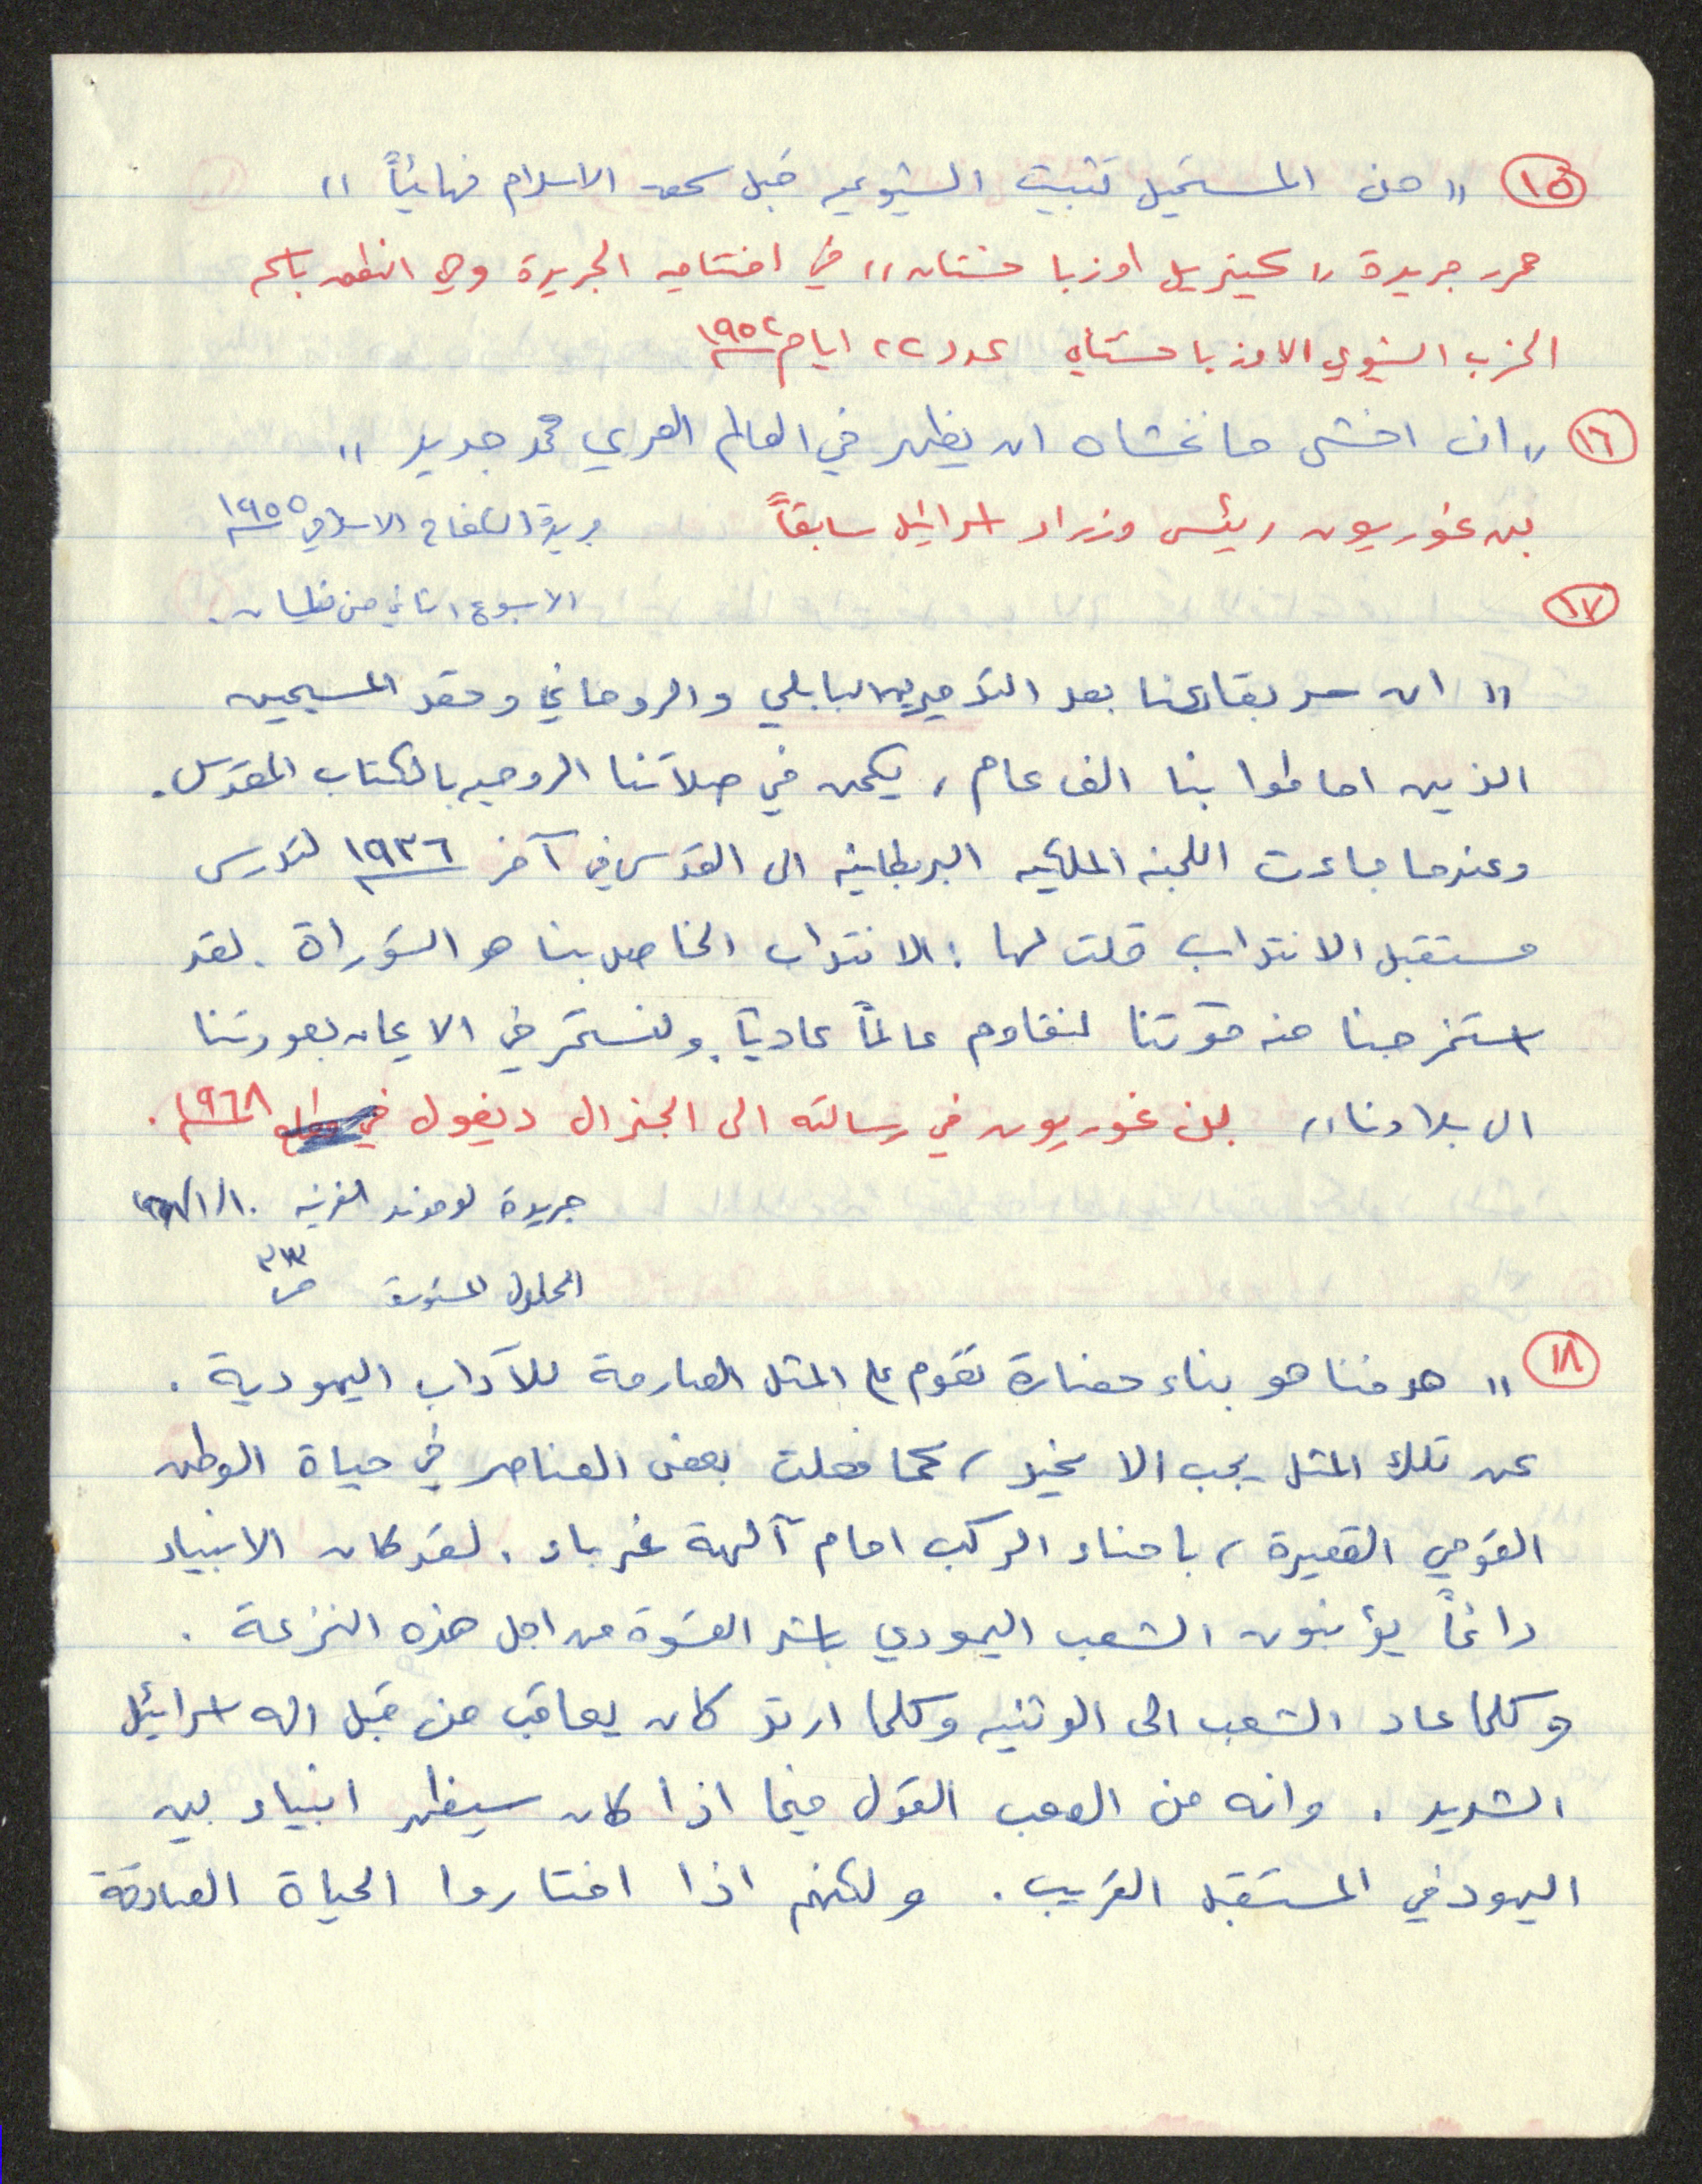 ١٥ " من المستحيل تثبيت الشيوعيه قبل سحق الاسلام نهائياً "
محرر جريدة " كيزيل اوزباخستان " في افتتاحيه الجريدة وهي الناطقه باسم
الحزب الشيوعي الاوزباخستاني عدد ٢٢ ايار ١٩٥٢
١٦ " ان اخشى ما نخشاه ان يظهر في العالم العربي محمد جديد "
بن غوريون رئيس وزراء اسرائيل سابقاً جريدة الكفاح الاسلامي ١٩٥٥
الاسبوع الثاني من نيسان .
١٧
" ان سر بقاءنا بعد التدميرين البابلي والروماني وحقد المسيحين
الذين احاطوا بنا الف عام ، يكمن في صلاتنا الروحيه بالكتاب المقدس .
وعندما جاءت اللجنه الملكيه البريطانيه الى القدس في آخر ١٩٣٦ لتدرس
مستقبل الانتداب قلت لها : الانتداب الخاص بنا هو التوراة . لقد
استخرجنا منه قوتنا لنقاوم عالماً عادياً ولنستمر في الايمان بعودتنا
الى بلادنا " بن غوريون في رسالته الى الجنرال ديغول في ١٩٦٨ .
جريدة لوموند الفرنسيه ١٠/١/
الحلول المستوردة ص
١٨ " هدفنا هو بناء حضارة تقوم على المثل الصارمة للآداب اليهودية .
عن تلك المثل يجب الا نحيد ، كما فعلت بعض العناصر في حياة الوطن
القومي القصيرة ، باحناء الركب امام آلهة غرباء . لقد كان الانبياء
دائماً يؤنبون الشعب اليهودي باشد القسوة من اجل هذه النزعة .
وكلما عاد الشعب الى الوثنيه وكلما ارتد كان يعاقب من قبل اله اسرائيل
الشديد . وانه من الصعب القول فيما اذا كان سيظهر انبياء بين
اليهود في المستقبل القريب . ولكنهم اذا اختاروا الحياة الصادقة